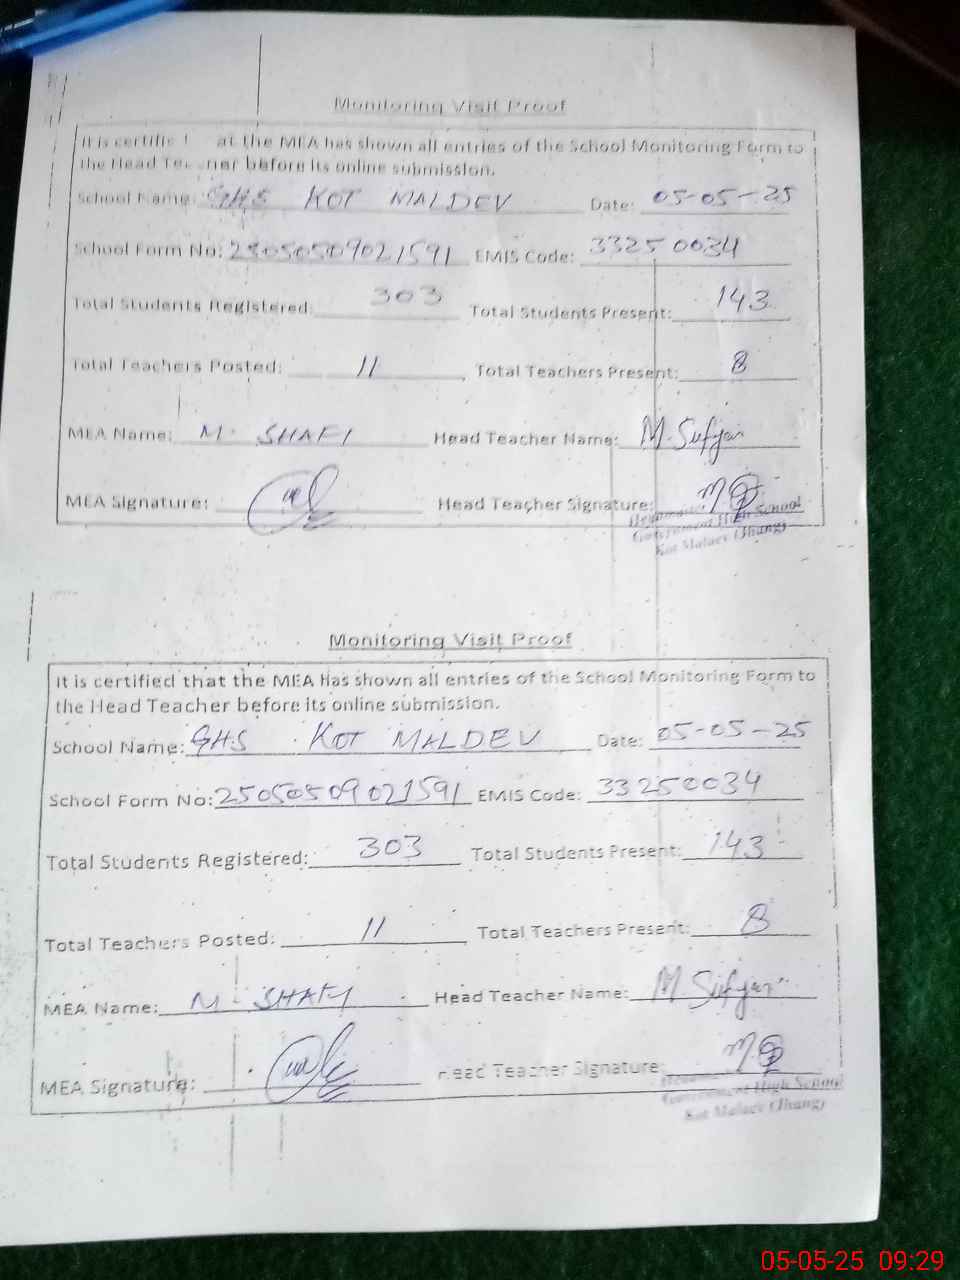 Monitoring Visit Proof
It is certifie at the MEA has shown all entries of the School Monitoring Form to
the Head before its online submission.
School Name: GHS KOT MALDEV Date: 05-05-25
School Form No: 25050509021591 EMIS Code: 33250034
Total Students Registered: 303 Total Students Present: 143
Total Teachers Posted: 11 Total Teachers Present: 8
MEA Name: M. SHAFI Head Teacher Name: M. Sufyan
MEA Signature: Head Teacher Signature:
Government High School
Kot Maldev (Jhang)
Monitoring Visit Proof
It is certified that the MEA Has shown all entries of the School Monitoring Form to
the Head Teacher before its online submission.
School Name: GHS KOT MALDEV Date: 05-05-25
School Form No: 25050509021591 EMIS Code: 33250034
Total Students Registered: 303 Total Students Present: 143
Total Teachers Posted: 11 Total Teachers Present: 8
MEA Name: M. SHAFI Head Teacher Name: M Sufyan
MEA Signature: Head Teacher Signature:
Government High School
Kot Maldev (Jhang)
05-05-25 09:29